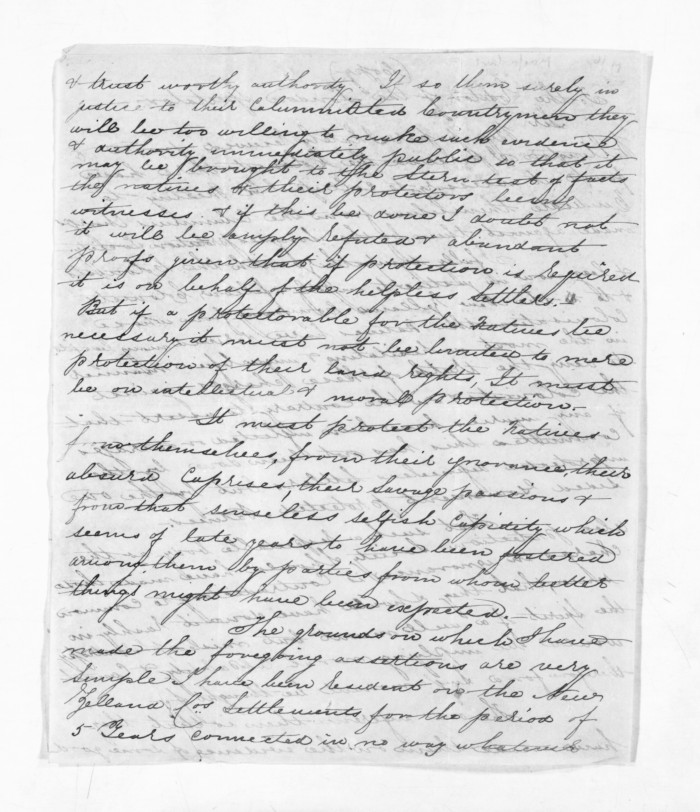 & trust worthy authority If so them surely in
justice to their Calumniated Countrymen they
will be too willing to make such evidence
& authority immediately public so that it
may be brought to the Stern test of facts
the natives & their protectors being
witnesses & if this be done I doubt not
it will be amply refuted & abundant
proofs given that if protection is required
it is on behalf of the helpless Settlers.—
But if a protectorable for the Natives be
necessary it must not be limited to mere
protection of their land rights, It must
be on intellectual & moral protection.—
It must protect the Natives
from themselves, from their ignorance, their
absurd Caprises, their Savage passions &
from that senseless selfish Cupidety which
seems of late years to have been fostered
among them by parties from whom better
things might have been expected.—
The grounds on which I have
made the foregoing assertions are very
simple I have been resident on the New
Zelland Cos Settlements for the period of
5 Years connected in no way whatever